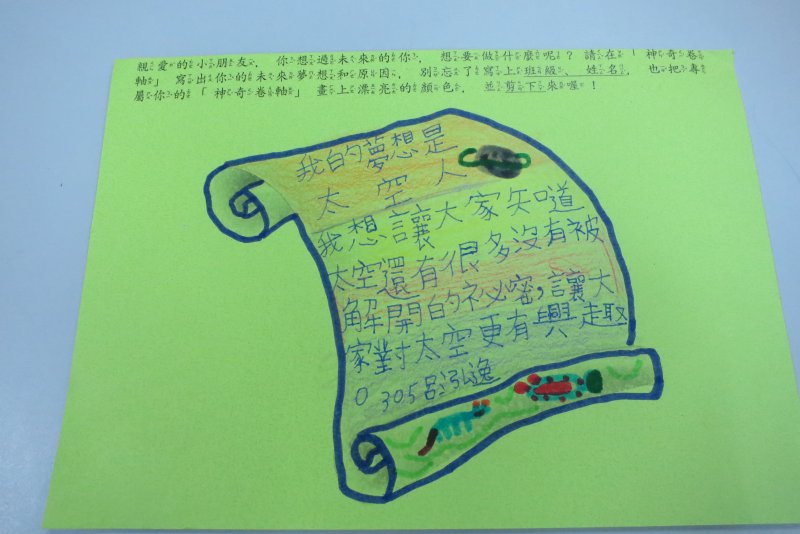 親愛的小朋友，你想過未來的你，想要做什麼呢？請在「神奇卷
軸」寫出你的未來夢想和原因，別忘了寫上班級、姓名，也把專
屬你的「神奇卷軸」畫上漂亮的顏色，並剪下來喔！
我的夢想是
太空人
我想讓大家知道
太空還有很多沒有被
解開的祕密，讓大
家對太空更有興趣
。305呂泓逸